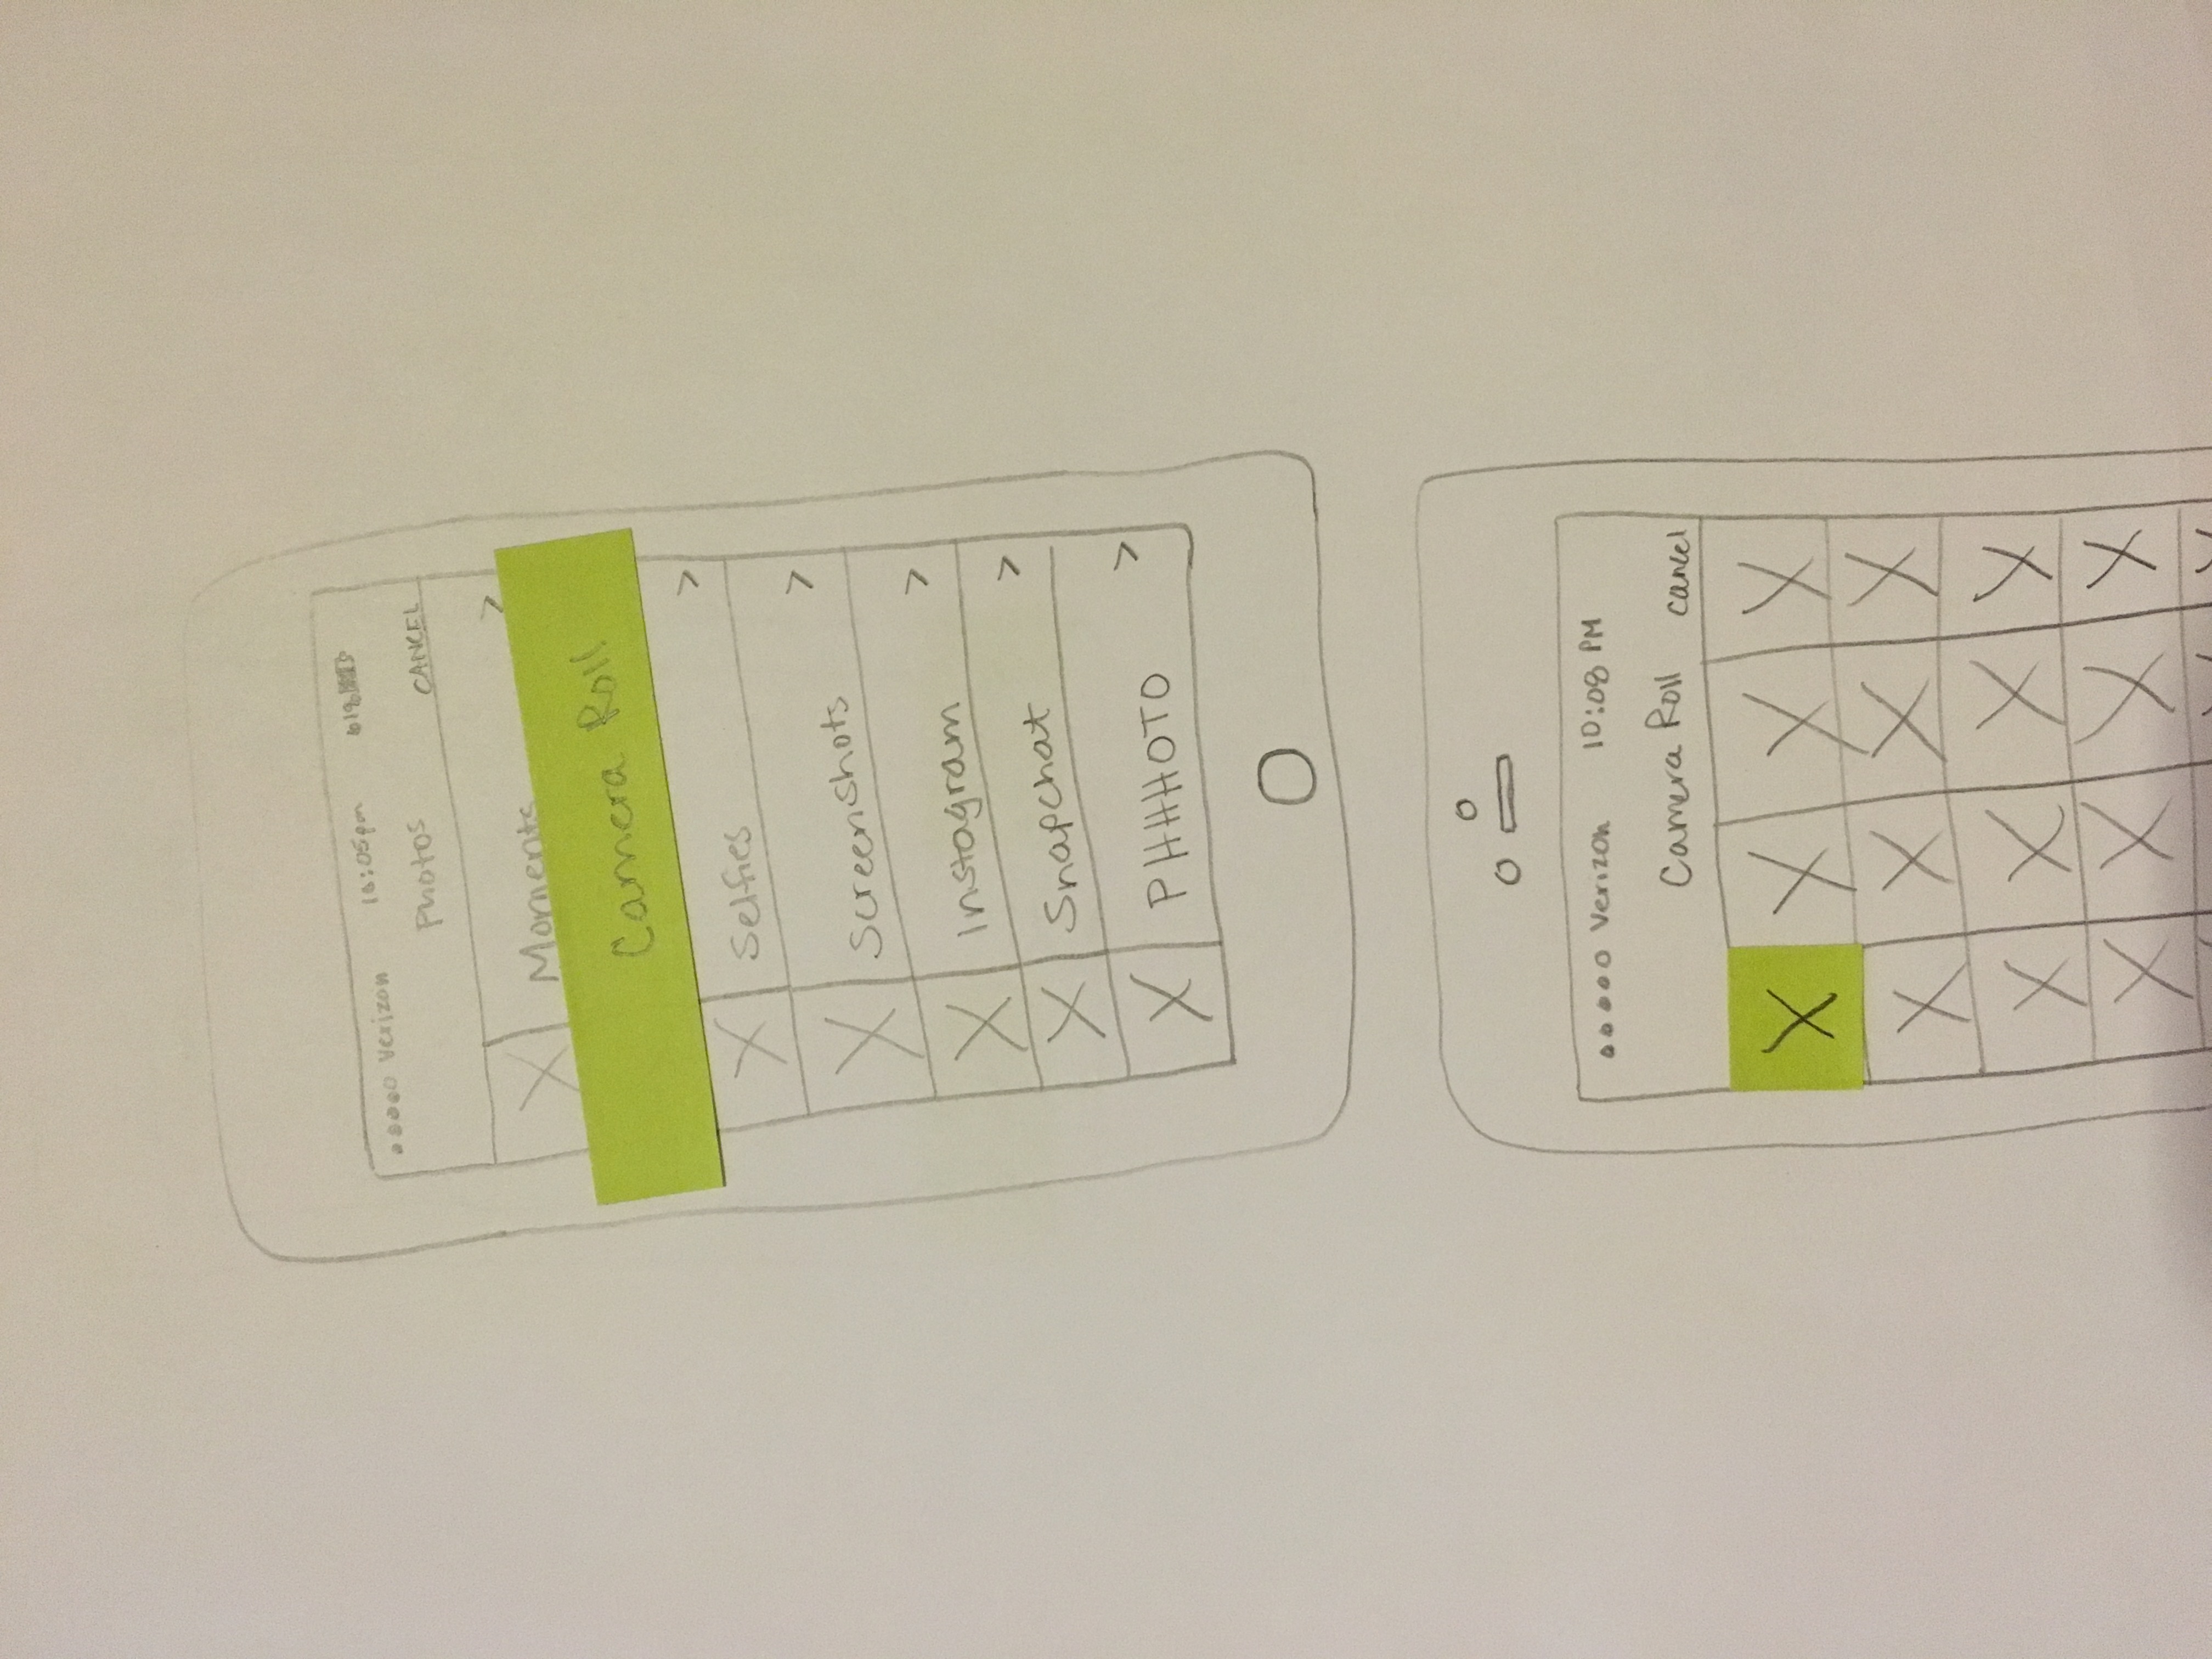 Verizon 10:05pm
Photos CANCEL
>
Moments
Camera Roll
>
X Selfies
>
X Screenshots
>
X Instagram
>
X Snapchat
>
X PHHHOTO
Verizon 10:08 PM
Camera Roll cancel
X X X X
X X X X
X X X X
X X X X